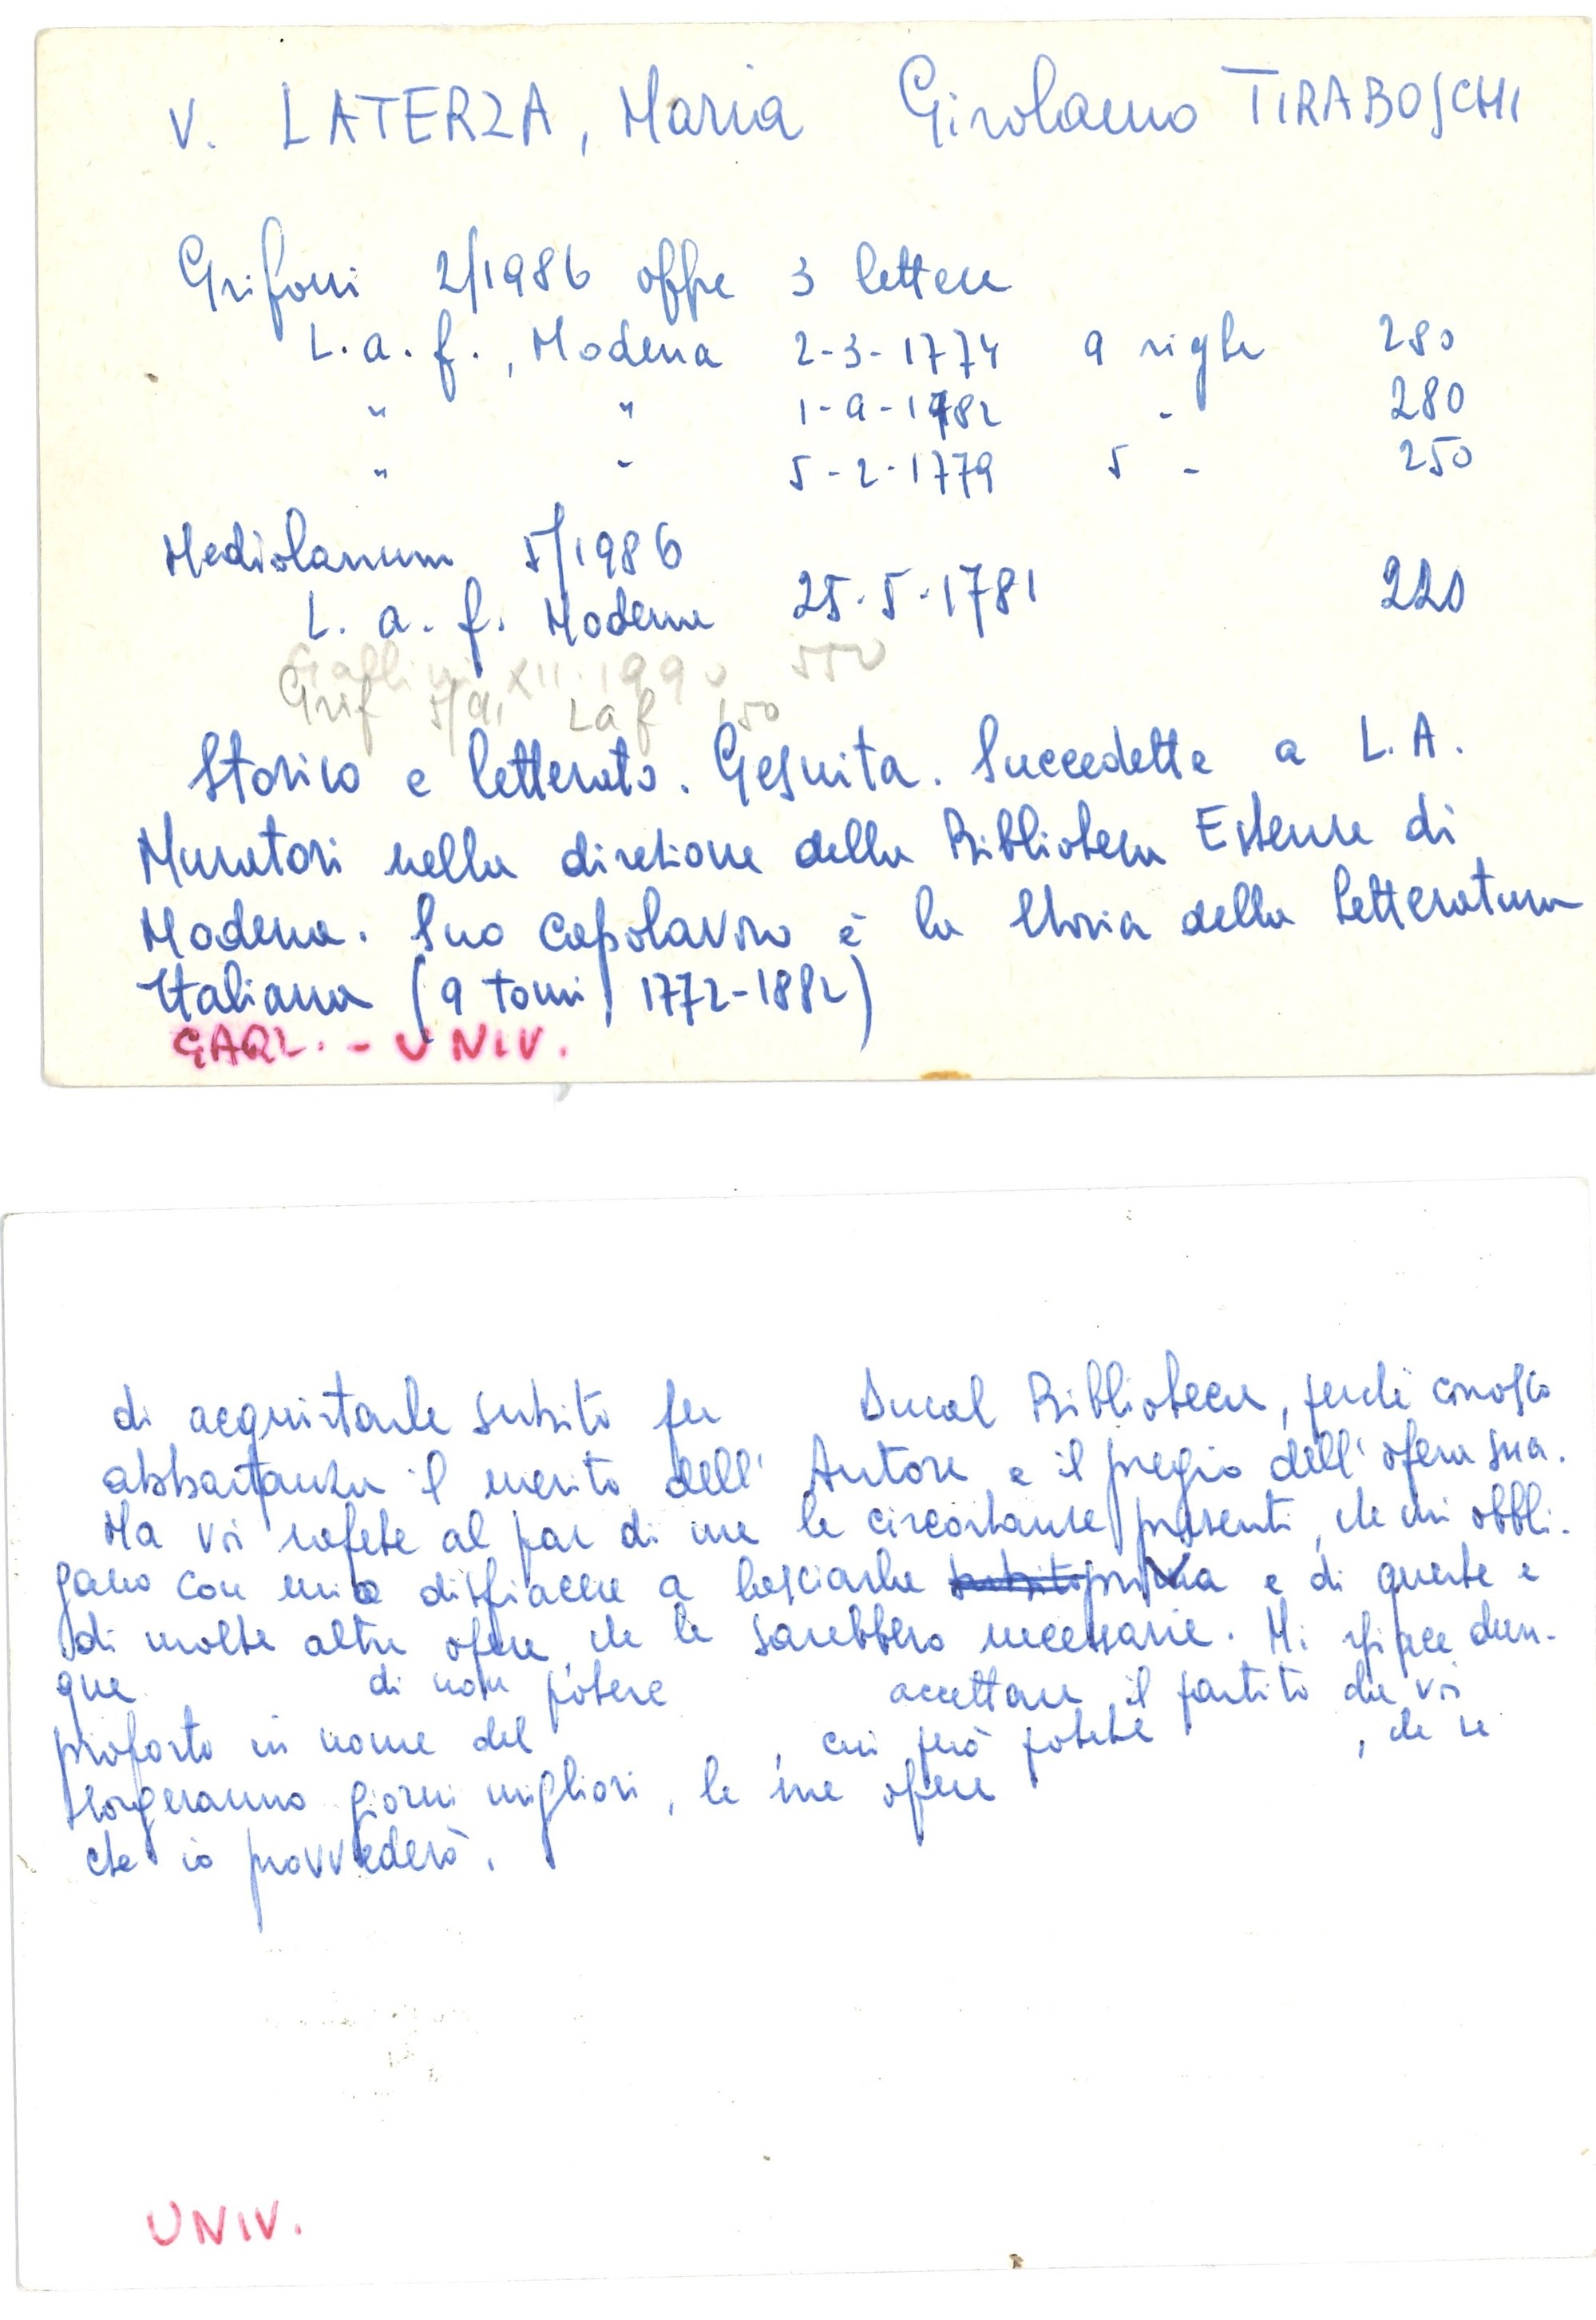 v. LATERZA, Maria Girolamo TIRABOSCHI
Grifoni 2/1986 offre 3 lettere
L.a.f., Modena 2-3-1774 9 righe 280
" " 1-9-1782 " 280
" " 5-2-1779 5 " 250
Mediolanum 5/1986
L. a. f. Modena 25-5-1781 220
XII.1990 550
Grif 5/91 Laf 150
Storico e letterato. Gesuita. Succedette a L.A.
Muratori nella direzione della Biblioteca Estense di
Modena. Suo capolavoro è la Storia della Letteratura
Italiana (9 tomi, 1772-1882)
GARL. - UNIV.
di acquistarle subito per Ducal Biblioteca, perché conosco
abbastanza il merito dell' Autore e il pregio dell' opera sua.
Ma voi sapete al par di me le circostanze presenti, che mi obbli-
gano con mio dispiacere a lasciarla priva e di queste e
di molte altre opere che le sarebbero necessarie. Mi spiace dun-
que di non potere accettare il partito che voi
proposto in nome del , cui però potete , che se
sorgeranno giorni migliori, le sue opere
che io provvederò.
UNIV.